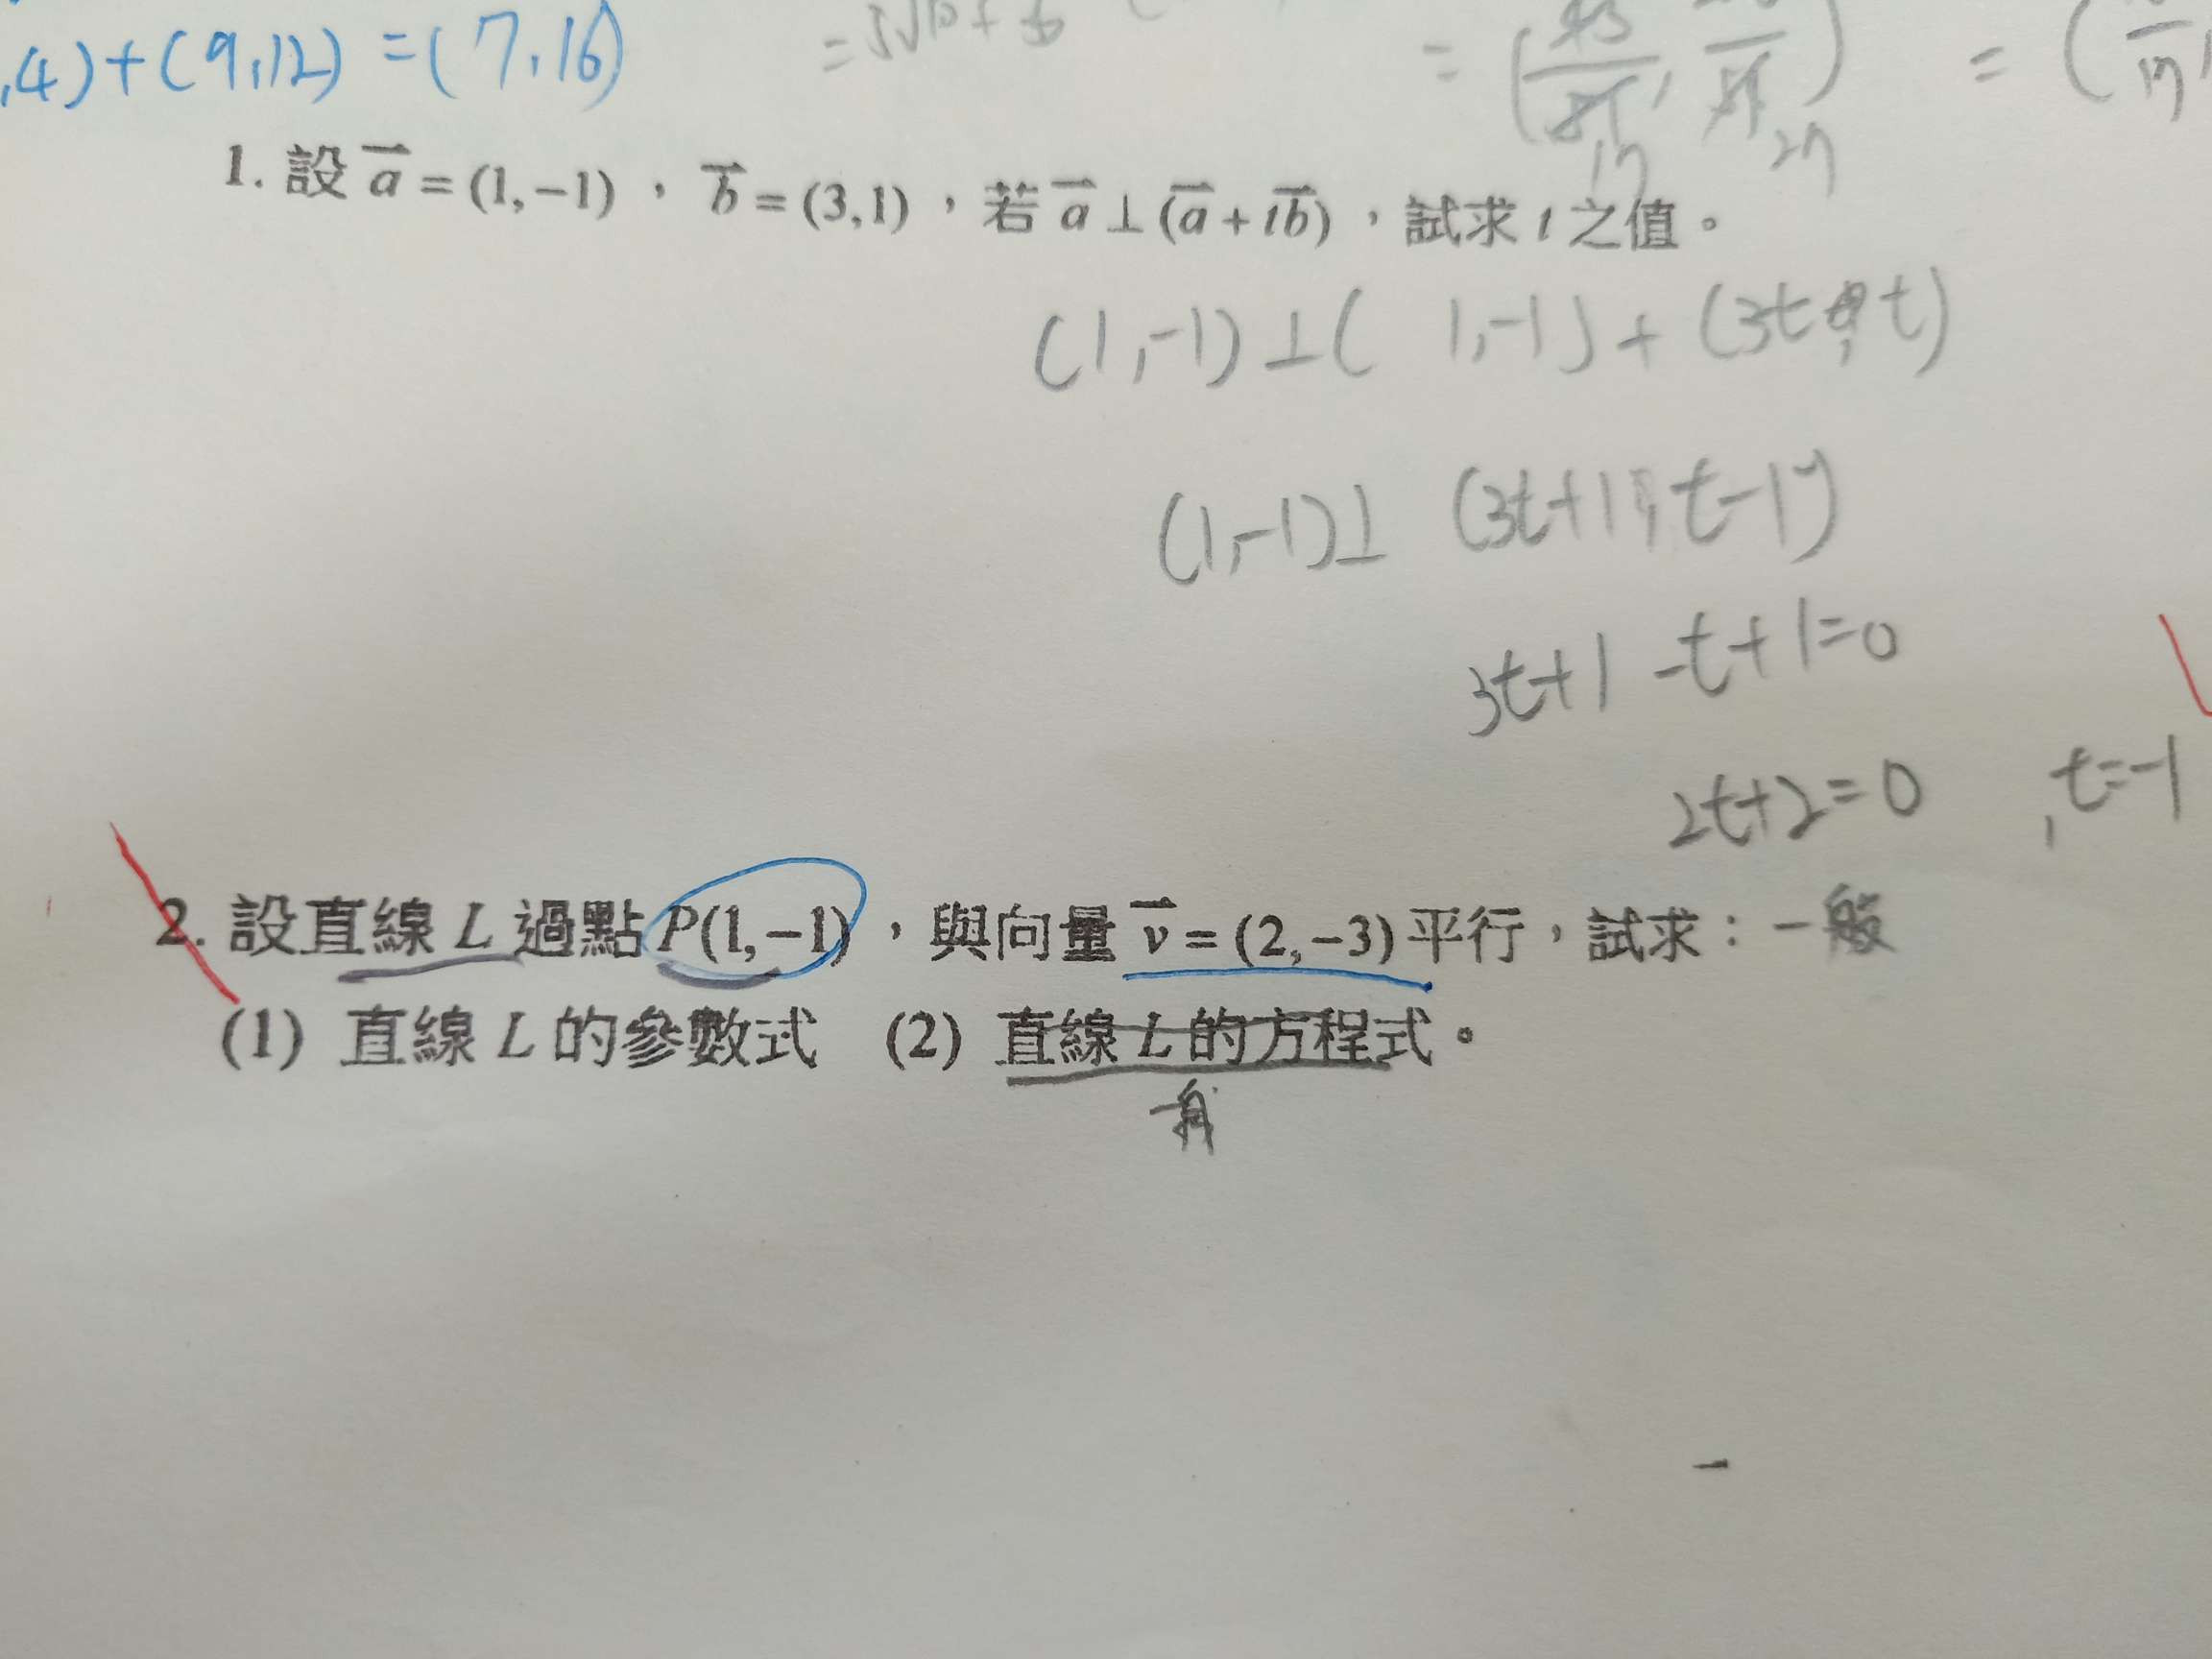 ,4)+(9,12)=(7,16)
1. 設 a = (1,−1)，b = (3,1)，若 a ⊥ (a + tb)，試求 t 之值。
(1,-1)⊥( 1,-1)+(3t, t)
(1,-1)⊥ (3t+1, t-1)
3t+1 -t+1=0
2t+2=0 , t=-1
2. 設直線 L 過點 P(1,−1)，與向量 v = (2,−3) 平行，試求：一般
(1) 直線 L 的參數式 (2) 直線 L 的方程式。